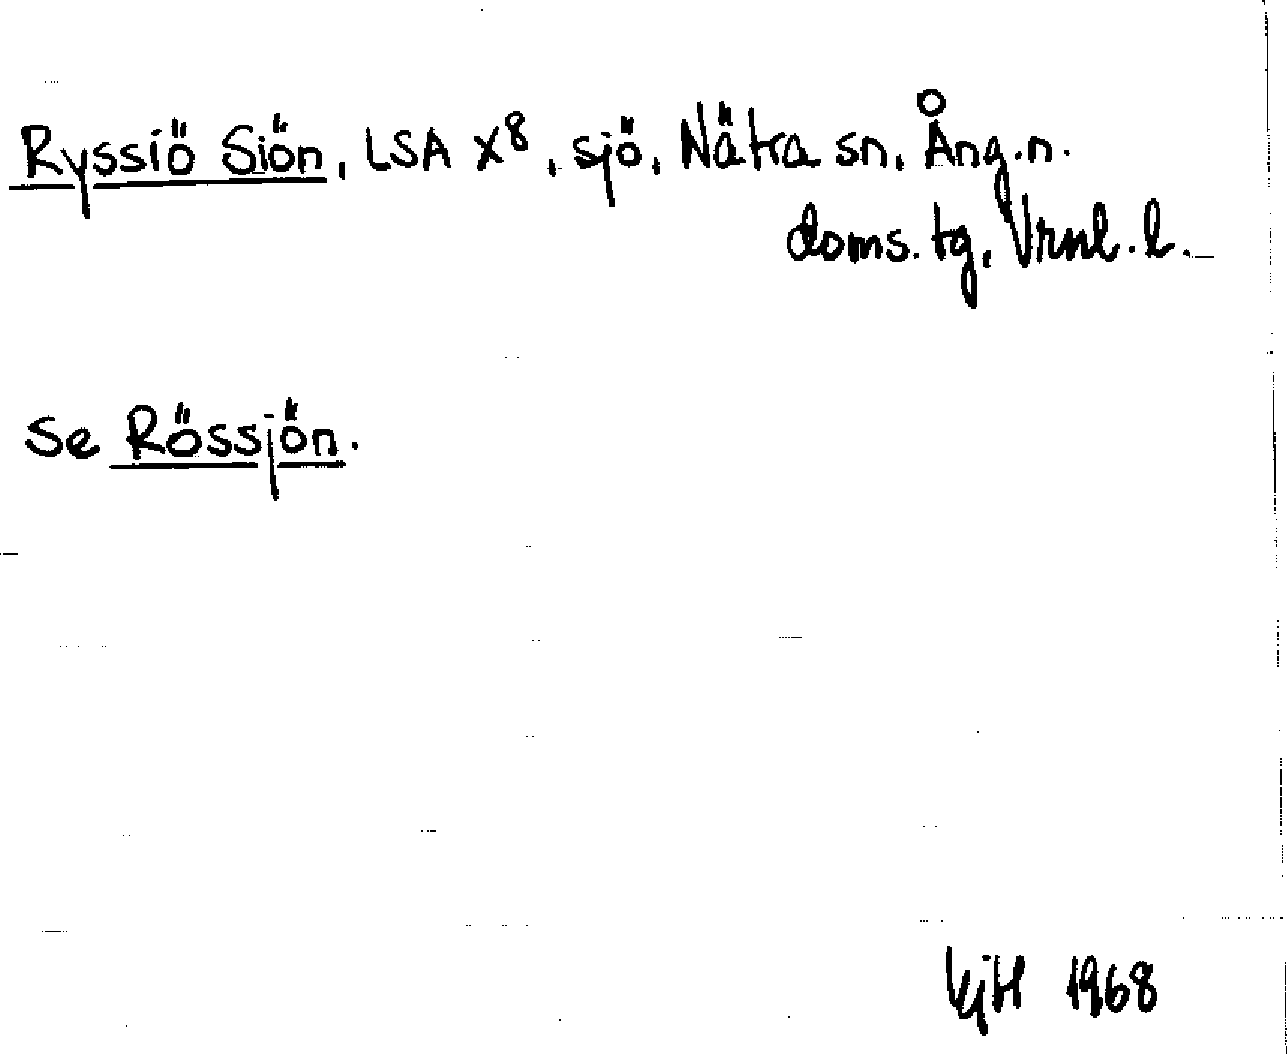 Ryssiö Siön, LSA X⁸, sjö, Nätra sn, Ång.n.
doms. tg, Vrnl. l.
Se Rössjön.
KjH 1968